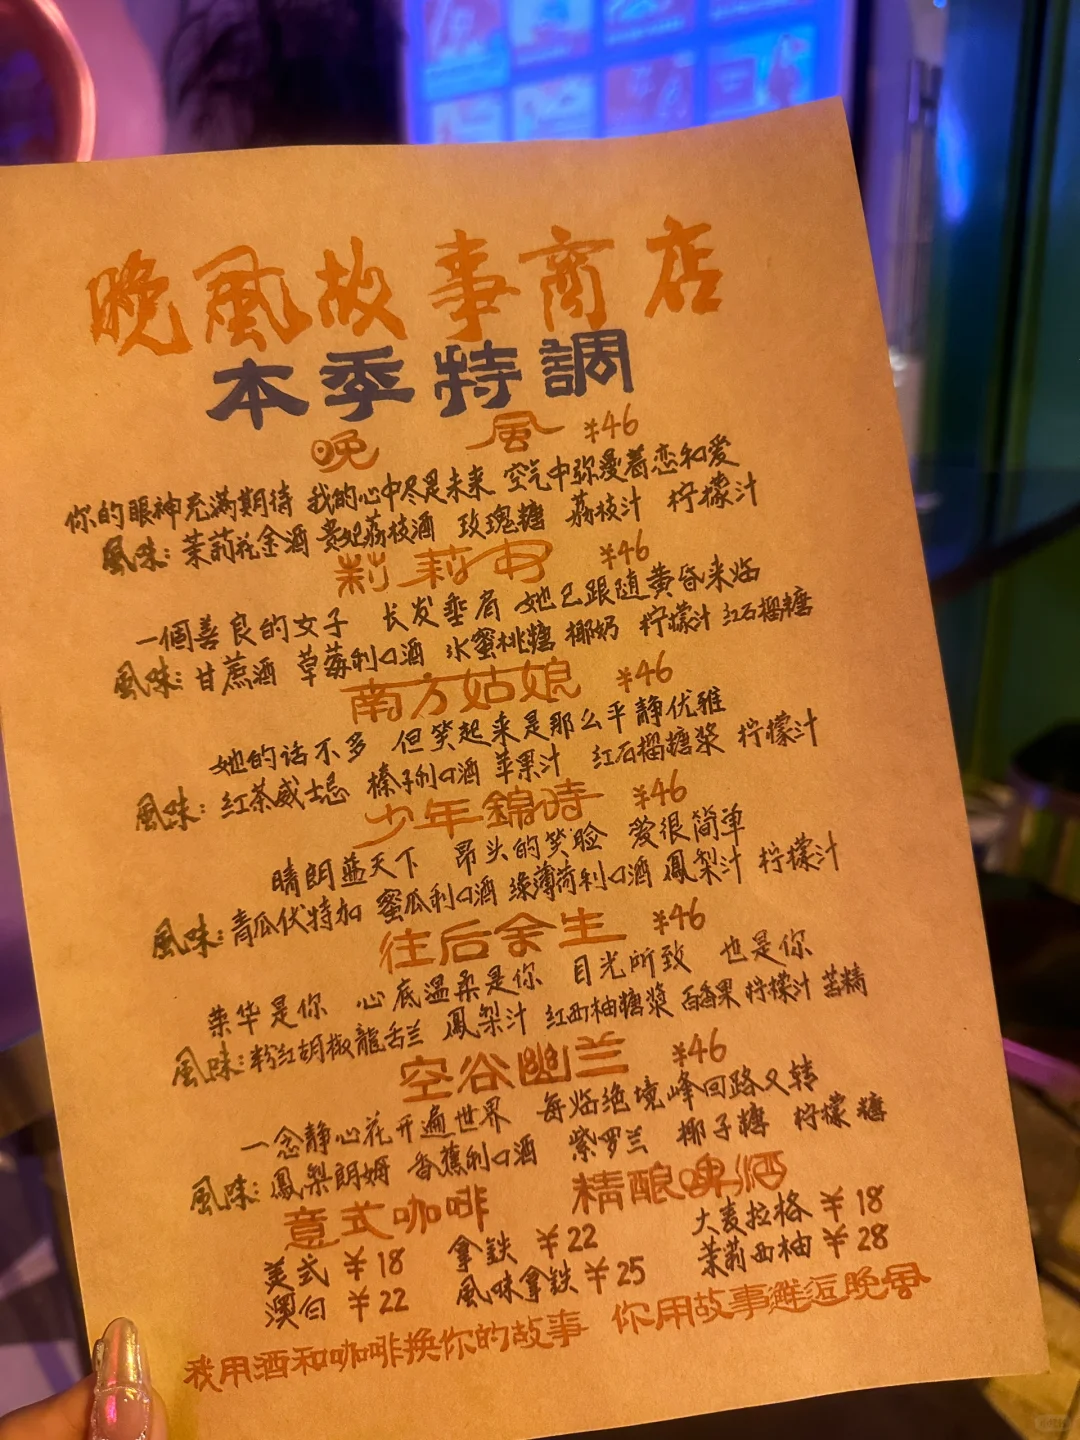 晚風故事商店
本季特調
晚風 ¥46
你的眼神充满期待 我的心中尽是未来 空气中弥漫着恋和爱
風味：茉莉花金酒 贵妃荔枝酒 玫瑰糖 荔枝汁 柠檬汁
莉莉安 ¥46
一個善良的女子 长发垂肩 她已跟随黄昏来临
風味：甘蔗酒 草莓利口酒 水蜜桃糖 椰奶 柠檬汁 红石榴糖
南方姑娘 ¥46
她的话不多 但笑起来是那么平静优雅
風味：红茶威士忌 榛子利口酒 苹果汁 红石榴糖漿 柠檬汁
少年錦時 ¥46
晴朗蓝天下 昂头的笑脸 爱很简单
風味：青瓜伏特加 蜜瓜利口酒 绿薄荷利口酒 鳳梨汁 柠檬汁
往后余生 ¥46
荣华是你 心底温柔是你 目光所致 也是你
風味：粉红胡椒龍舌兰 鳳梨汁 红西柚糖漿 百香果 柠檬汁 苦精
空谷幽兰 ¥46
一念静心花开遍世界 每临绝境峰回路又转
風味：鳳梨朗姆 香蕉利口酒 紫罗兰 椰子糖 柠檬糖
意式咖啡 精酿啤酒
美式 ¥18 拿铁 ¥22 大麦拉格 ¥18
澳白 ¥22 風味拿铁 ¥25 茉莉西柚 ¥28
我用酒和咖啡换你的故事 你用故事邂逅晚風